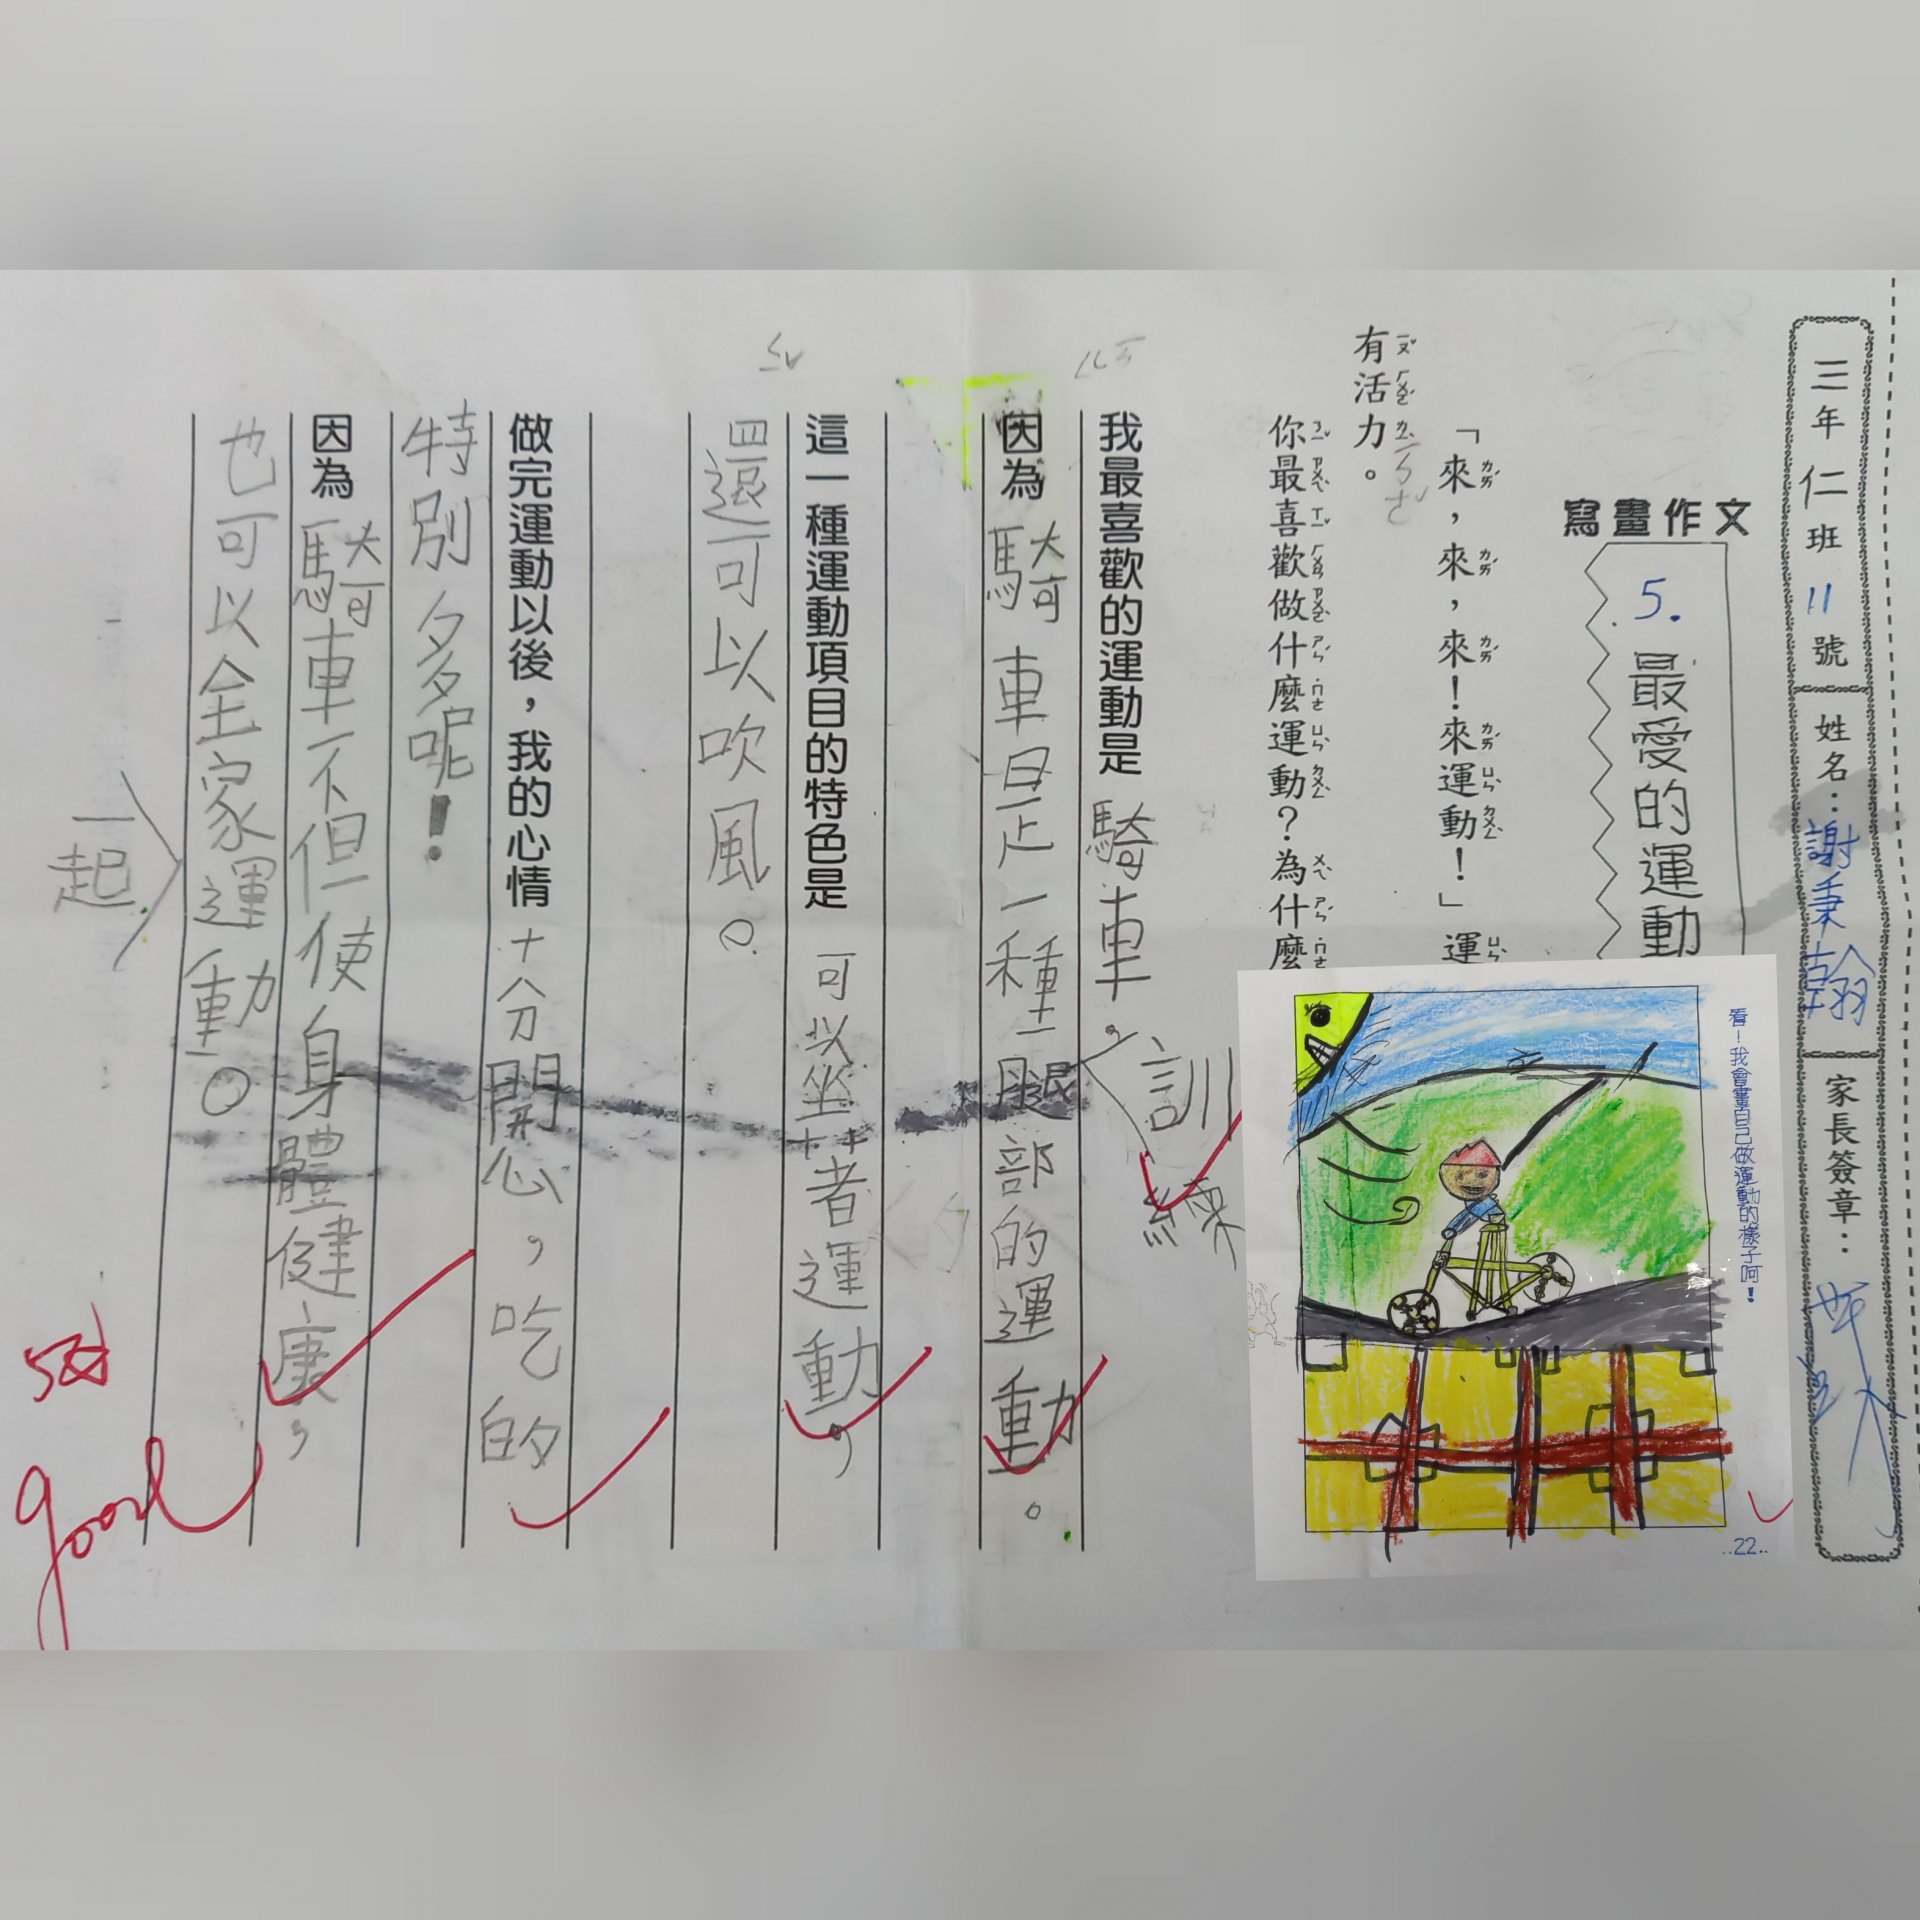 三年仁班11號 姓名：謝秉翰 家長簽章：
寫畫作文
5.最愛的運動
「來，來，來！來運動！」運
有活力。
你最喜歡做什麼運動？為什麼
我最喜歡的運動是騎車。
訓練
因為騎車是一種腿部的運動。
這一種運動項目的特色是可以坐著運動，
還可以吹風。
做完運動以後，我的心情十分開心，吃的
特別多呢！
因為騎車不但使身體健康，
也可以全家運動。
一起
good
看！我會畫自己做運動的樣子呵！
..22..